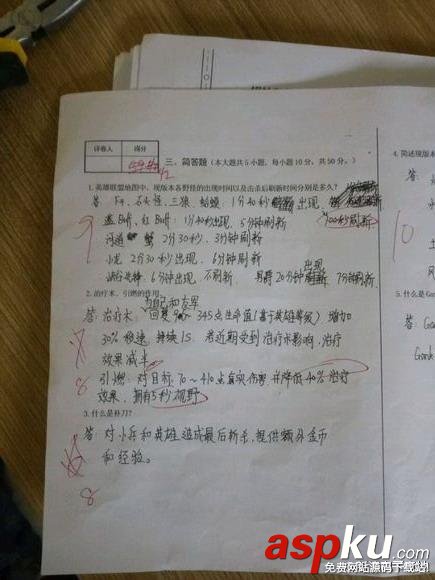 评卷人 得分
三、简答题（本大题共5小题，每小题10分，共50分。）
1.英雄联盟地图中，现版本各野怪的出现时间以及击杀后刷新时间分别是多久？
答：F4、石头怪、三狼、蛤蟆：1分40秒出现，100秒刷新
蓝Buff、红Buff：1分40秒出现，5分钟刷新
河道蟹 2分30秒，3分钟刷新
小龙 2分30秒出现，6分钟刷新
6分钟出现 不刷新 20分钟出现 7分钟刷新
9
2.治疗术、引燃的作用
与自己和友军
答：治疗术：回复90~345点生命值（基于英雄等级）增加
30%移速，持续1S。若近期受到治疗术影响，治疗
效果减半
引燃：对目标70~410点真实伤害并降低40%治疗
效果，拥有5秒视野
8
3.什么是补刀？
答：对小兵和英雄造成最后斩杀，提供额外金币
和经验。
8
4.简述现
答：
10
5.什么是Gan
答：Gank
Gank
asp
ku
.com
免费网站源码下载站!